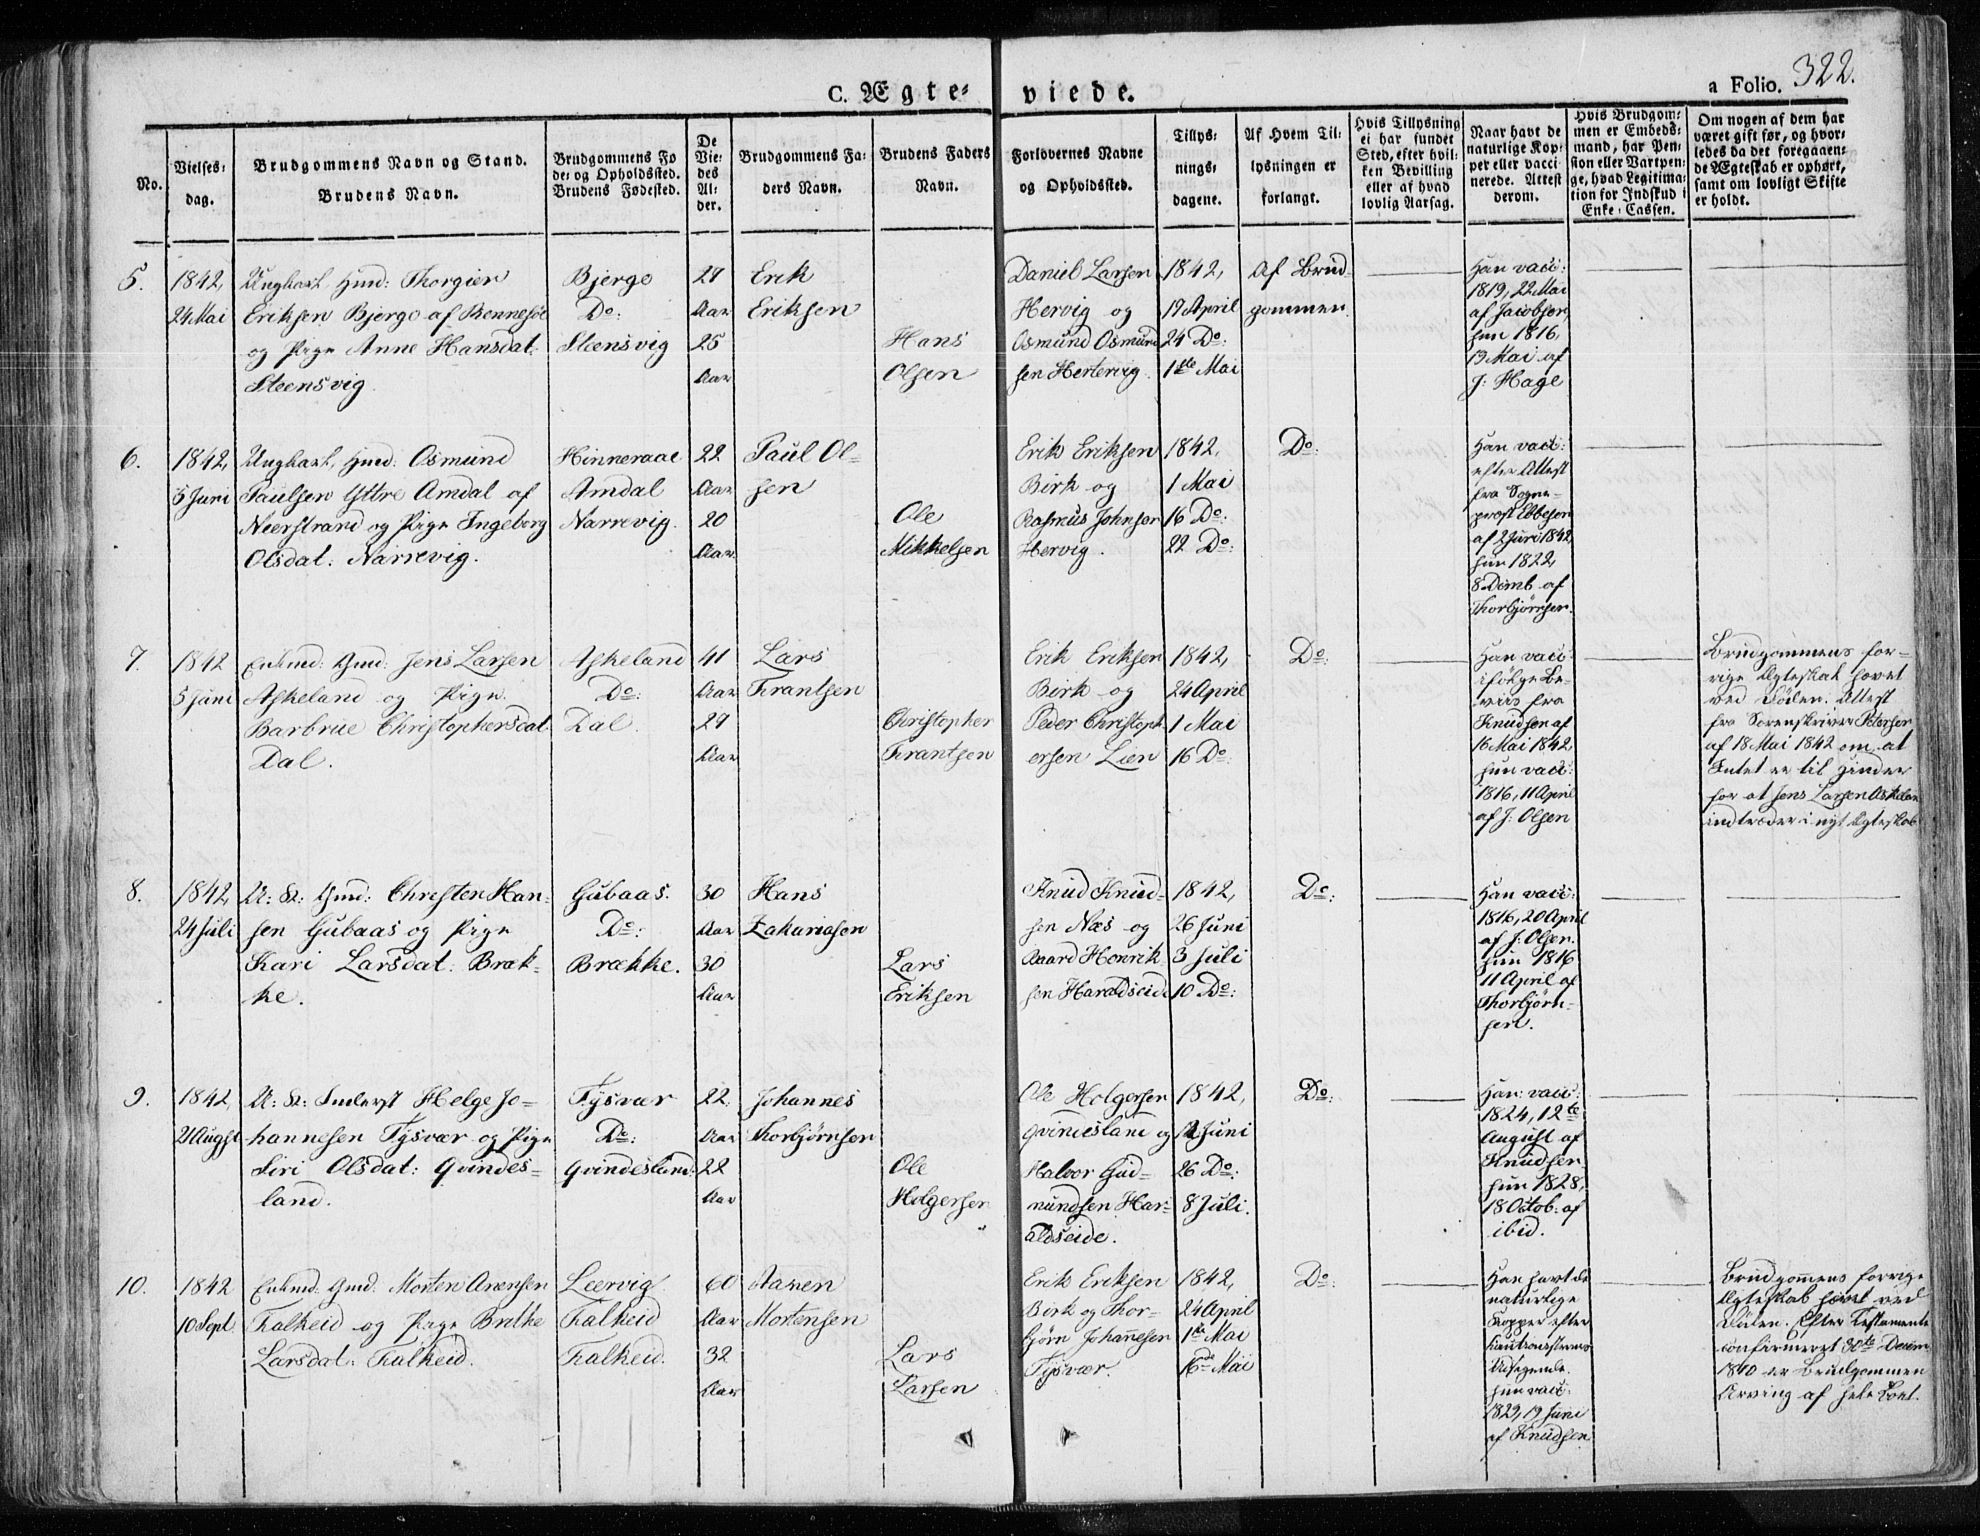 C. Ægte-
viede.
a Folio. 322.
No.
Vielses-
dag.
Brudgommens Navn og Stand.
Brudens Navn.
Brudgommens Fø
de- og Opholdssted.
Brudens Fødested.
De
Vie-
des
Al-
der.
Brudgommens Fa-
ders Navn.
Brudens Faders
Navn.
Forlovernes Navne
og Opholdssted.
Tillys-
nings-
dagene.
Af Hvem Til-
lysningen er
forlangt.
Hvis Tillysning
ei har fundet
Sted, efter hvil-
ken Bevilling
eller af hvad
lovlig Aarsag.
Naar havt de
naturlige Kop-
per eller vacci
nerede. Attest
derom.
Hvis Brudgom-
men er Embeds-
mand, har Pen-
sion eller Vartpen-
ge, hvad Legitima-
tion for Indskud i
Enke-Cassen.
Om nogen af dem har
været gift før, og hvor-
ledes da det foregaaen-
de Ægteskab er ophørt,
samt om lovligt Skifte
er holdt.
5.
1842,
24 Mai
Ungkarl, Gmd: Thorgier
Eriksen Bjergo af Rennesöe
og Pige Anne Hansdat:
Steensvig.
Bjergo
Do:
Steensvig
27
Aar
25
Aar
Erik
Eriksen
Hans
Olsen
Daniel Larsen
Hervig og
Osmund Osmund
sen Hertervig.
1842,
17 April
24 Do:
1ste Mai
Af Brud
gommen.
Han vacc:
1819, 22 Mai
af Jacobsen,
hun 1816,
19 Mai af
J: Hage
6.
1842,
5 Juni
Ungkarl, Gmd: Osmund
Paulsen Yttre Amdal af
Neerstrand og Pige Ingeborg
Olsdat: Narrevig.
Hinneraae
Amdal
Narrevig.
22
Aar
20
Aar
Paul Ol-
sen
Ole
Mikkelsen
Erik Eriksen
Birk og
Rasmus Johnsen
Hervig.
1842,
1 Mai
16 Do:
22 Do:
Do:
Han vacc:
efter Attest
fra Sogne-
præst Ebbesen
af 2 Juni 1842,
hun 1822,
8 Decmb. af
Thorbjörnsen.
7.
1842
5 Juni
Enkmd: Gmd: Jens Larsen
Askeland og Pige
Barbrue Christophersdat
Dal.
Askeland
Do:
Dal.
41
Aar
29
Aar
Lars
Frantsen
Christopher
Frantsen
Erik Eriksen
Birk og
Peder Christoph
ersen Lien
1842,
24 April
1 Mai
16 Do:
Do:
Han vacc:
ifölge Be-
viis fra
Knudsen af
16 Mai 1842,
hun vacc:
1816, 11 April
af J: Olsen
Brudgommens for-
rige Ægteskab hævet
ved Döden. Attest
fra Sorenskriver Petersen
af 18 Mai 1842 om, at
Intet er til Hinder
for at Jens Larsen Askelan
indtræder i nyt Ægteskab
8.
1842,
24 Juli
U: K: Gmd: Christen Han-
sen Gubaas og Pige
Kari Larsdat: Bræk-
ke.
Gubaas.
Do:
Brække.
30
Aar
30
Aar
Hans
Zakariasen
Lars
Eriksen
Knud Knud-
sen Næs og
Baard Henrik
sen Haraldseide
1842,
26 Juni
3 Juli
10 Do:
Do:
Han vacc:
1816, 20 April
af J: Olsen.
hun 1816
11 April af
Thorbjörn-
sen.
9.
1842,
21 Augst
U: K: Inderst Helge Jo-
hannesen Tysvær og Pige
Siri Olsdat: Qvindes-
land.
Tysvær
Do:
Qvindesland.
22.
Aar
22
Aar
Johannes
Thorbjørnsen
Ole
Holgersen
Ole Holgersen
Qvindesland og
Halvor Gud-
mundsen Har-
aldseide.
1842,
12 Juni
26 Do:
8 Juli.
Do:
Han: vacc:
1824, 12te
August af
Knudsen
hun 1828,
18 Octob: af
ibid.
10.
1842
10 Sept
Enkmd: Gmd. Morten Arensen
Falkeid og Pige Brithe
Larsdat: Falkeid.
Leervig
Falkeid
Falkeid.
60
Aar
32
Aar
Aaren
Mortensen
Lars
Larsen
Erik Eriksen
Birk og Thor-
björn Johannesen
Tysvær.
1842,
24 April
1te Mai
16de Mai
Do:
Han havt de
naturlige
Kopper efter
Udsigende.
hun vacc:
1823, 19 Juni
af Knudsen
Brudgommens forrige
Ægteskab hævet ved
Döden. Efter Testamente
confirmeret 30te Decem
1840 er Brudgommen
Arving af hele Boet.